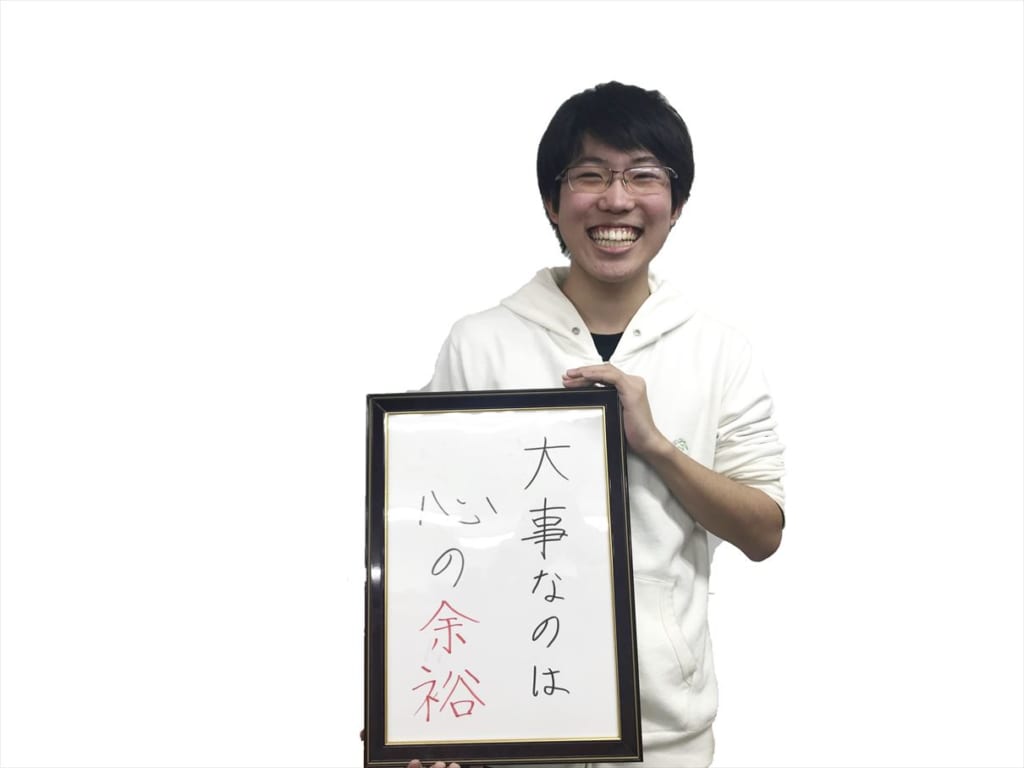 大事なのは
心の余裕